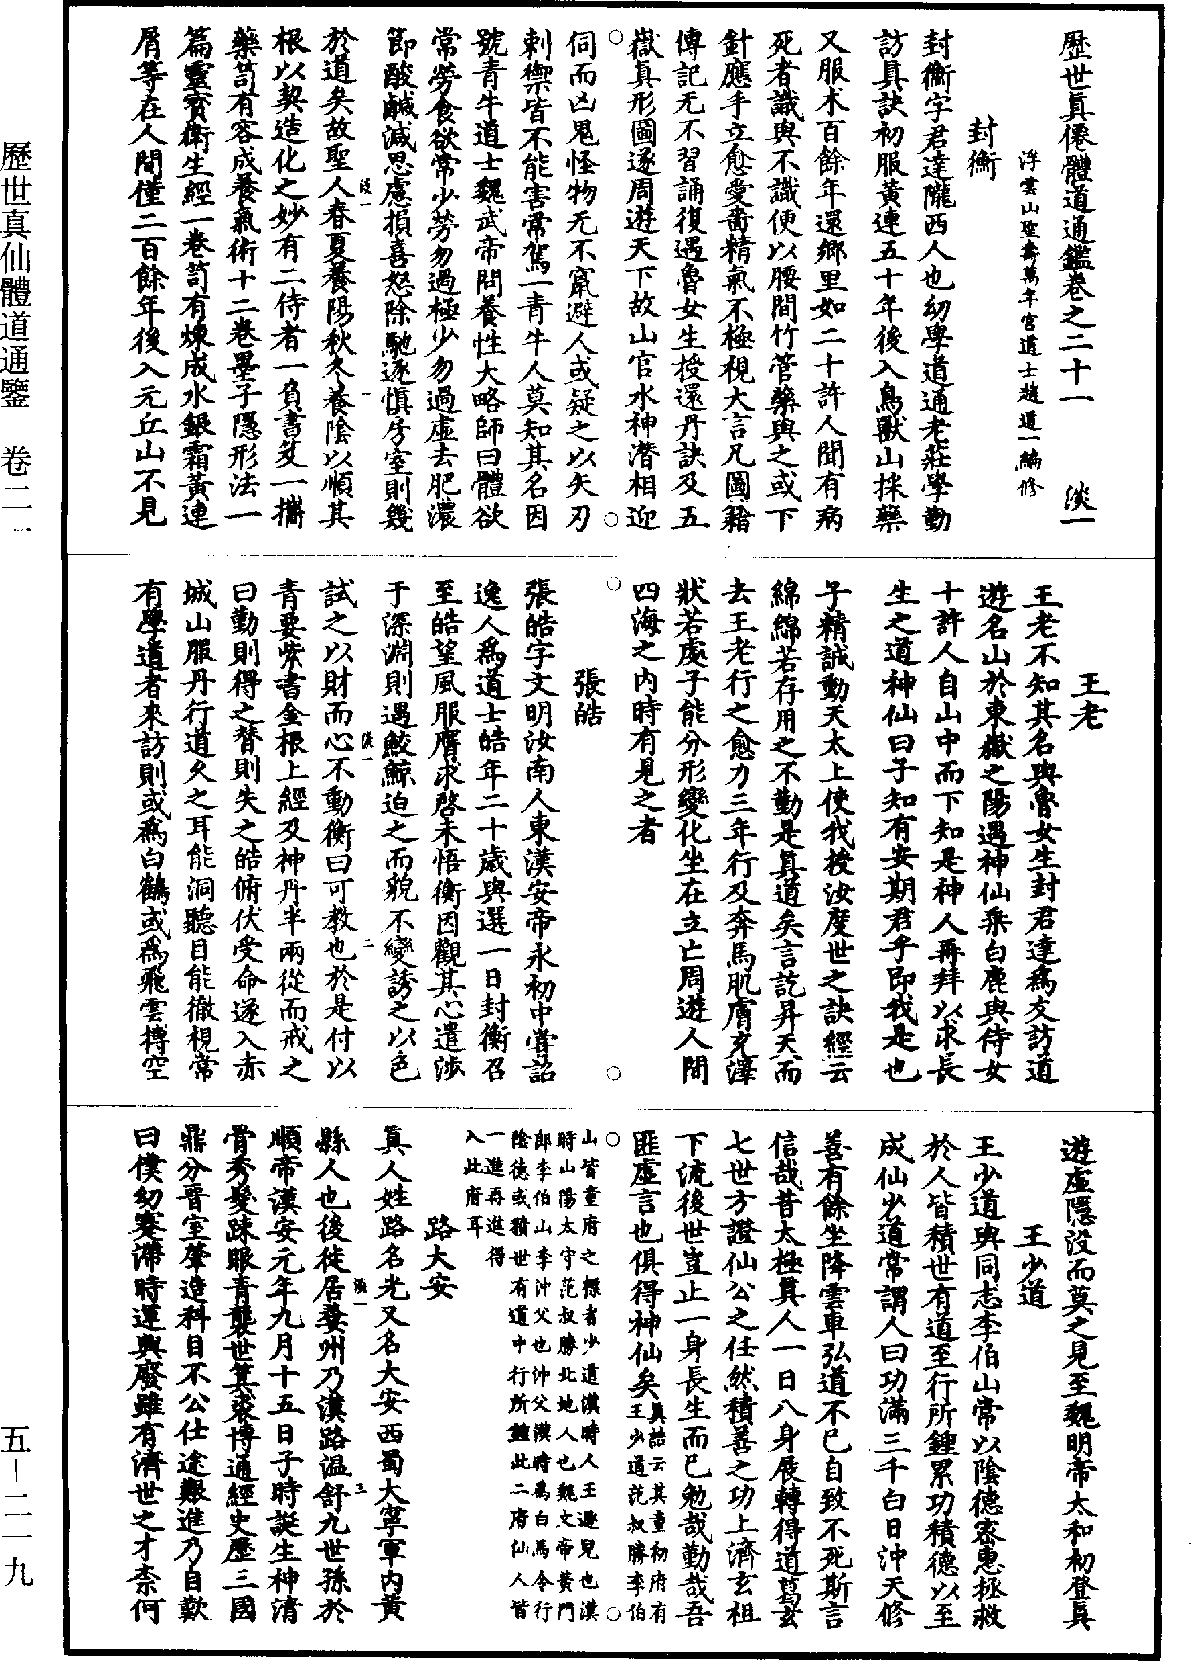 歷世真仙體道通鑒　卷二一
五—二一九
歷世眞僊體道通鑑卷之二十一　淡一
浮雲山聖壽萬年宮道士趙道一編修
封衡
封衡字君達隴西人也幼學道通老莊學勤
訪眞訣初服黃連五十年後入鳥獸山採藥
又服朮百餘年還鄉里如二十許人聞有病
死者識與不識便以腰間竹管藥與之或下
針應手立愈愛嗇精氣不極視大言凡圖籍
傳記无不習誦復遇魯女生授還丹訣及五
嶽眞形圖遂周遊天下故山官水神潛相迎
伺而凶鬼怪物无不竄避人或疑之以矢刃
刺禦皆不能害常駕一青牛人莫知其名因
號青牛道士魏武帝問養性大略師曰體欲
常勞食欲常少勞勿過極少勿過虛去肥濃
節酸鹹減思慮損喜怒除馳逐慎房室則幾
於道矣故聖人春夏養陽秋冬養陰以順其
根以契造化之妙有二侍者一負書笈一攜
藥笥有容成養氣術十二卷墨子隱形法一
篇靈寶衛生經一卷笥有煉成水銀霜黃連
屑等在人間僅二百餘年後入元丘山不見
王老
王老不知其名與魯女生封君達爲友訪道
遊名山於東嶽之陽遇神仙乘白鹿與侍女
十許人自山中而下知是神人再拜以求長
生之道神仙曰子知有安期君乎即我是也
子精誠動天太上使我授汝度世之訣經云
綿綿若存用之不勤是眞道矣言訖昇天而
去王老行之愈力三年行及奔馬肌膚充澤
狀若處子能分形變化坐在立亡周遊人間
四海之內時有見之者
張皓
張皓字文明汝南人東漢安帝永初中嘗詔
逸人爲道士皓年二十歲與選一日封衡召
至皓望風服膺求啓未悟衡因觀其心遣涉
于深淵則遇鮫鯨迫之而貌不變誘之以色
試之以財而心不動衡曰可教也於是付以
青要紫書金根上經及神丹半兩從而戒之
曰勤則得之替則失之皓俯伏受命遂入赤
城山服丹行道久之耳能洞聽目能徹視常
有學道者來訪則或爲白鶴或爲飛雲摶空
遊虛隱没而莫之見至魏明帝太和初登眞
王少道
王少道與同志李伯山常以陰德密惠拯救
於人皆積世有道至行所鍾累功積德以至
成仙少道常謂人曰功滿三千白日沖天修
善有餘坐降雲車弘道不已自致不死斯言
信哉昔太極眞人一日八身展轉得道葛玄
七世方證仙公之任然積善之功上濟玄祖
下流後世豈止一身長生而已勉哉勤哉吾
匪虛言也俱得神仙矣眞誥云其童初府有
王少道范叔勝李伯
山皆童府之標者少道漢時人王遜兒也漢
時山陽太守范叔勝北地人也魏文帝黃門
郎李伯山李沖父也沖父漢時爲白馬令行
陰德或積世有道中行所鍾此二府仙人皆
一進再進得
入此府耳
路大安
眞人姓路名光又名大安西蜀大寧軍內黃
縣人也後徙居婺州乃漢路温舒九世孫於
順帝漢安元年九月十五日子時誕生神清
骨秀髮踈眼青襲世箕裘博通經史歷三國
鼎分晉室肇造科目不公仕途艱進乃自歎
曰僕幼蹇滯時運興廢雖有濟世之才柰何